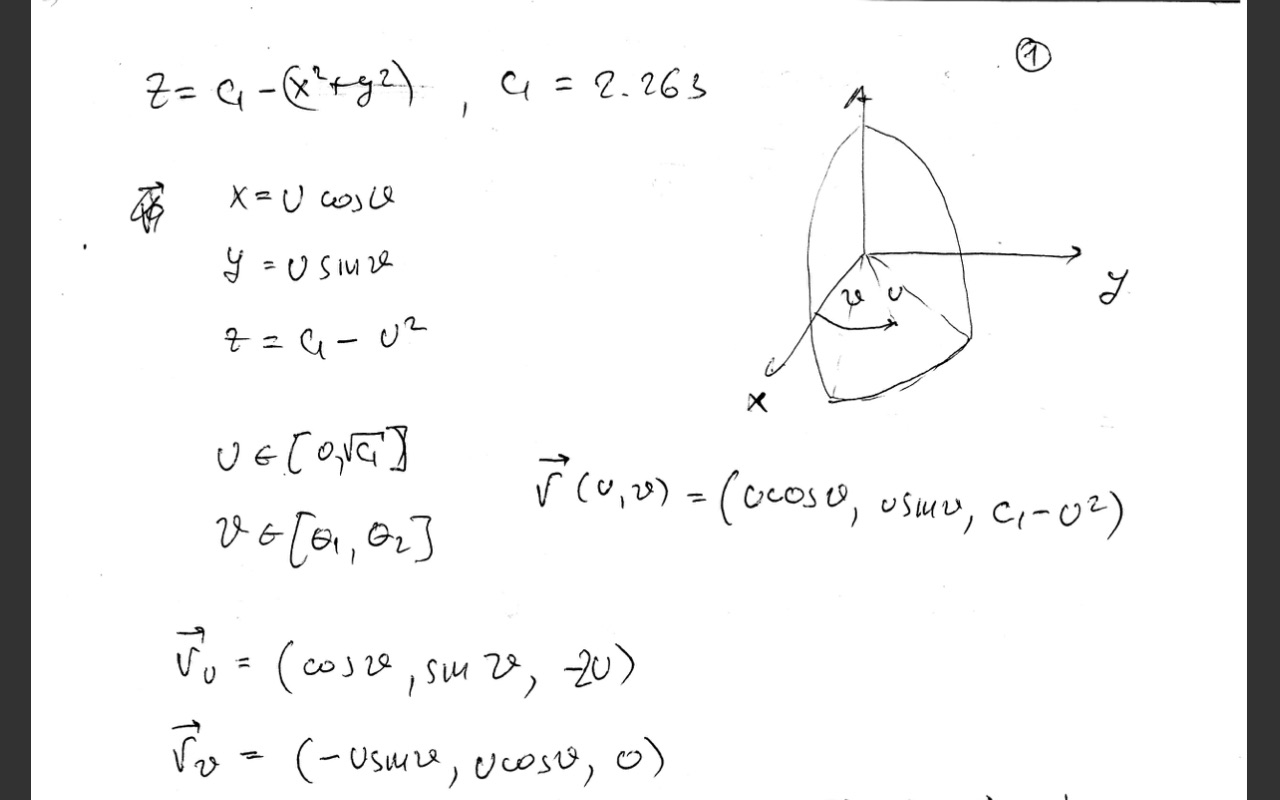 ①
z = c₁ - (x² + y²) , c₁ = 2.263
x = u cos v
y = u sin v
z = c₁ - u²
u ∈ [0, √c₁]
v ∈ [θ₁, θ₂]
r⃗ (u, v) = (u cos v, u sin v, c₁ - u²)
r⃗ᵤ = (cos v, sin v, -2u)
r⃗ᵥ = (-u sin v, u cos v, 0)
y
v u
x